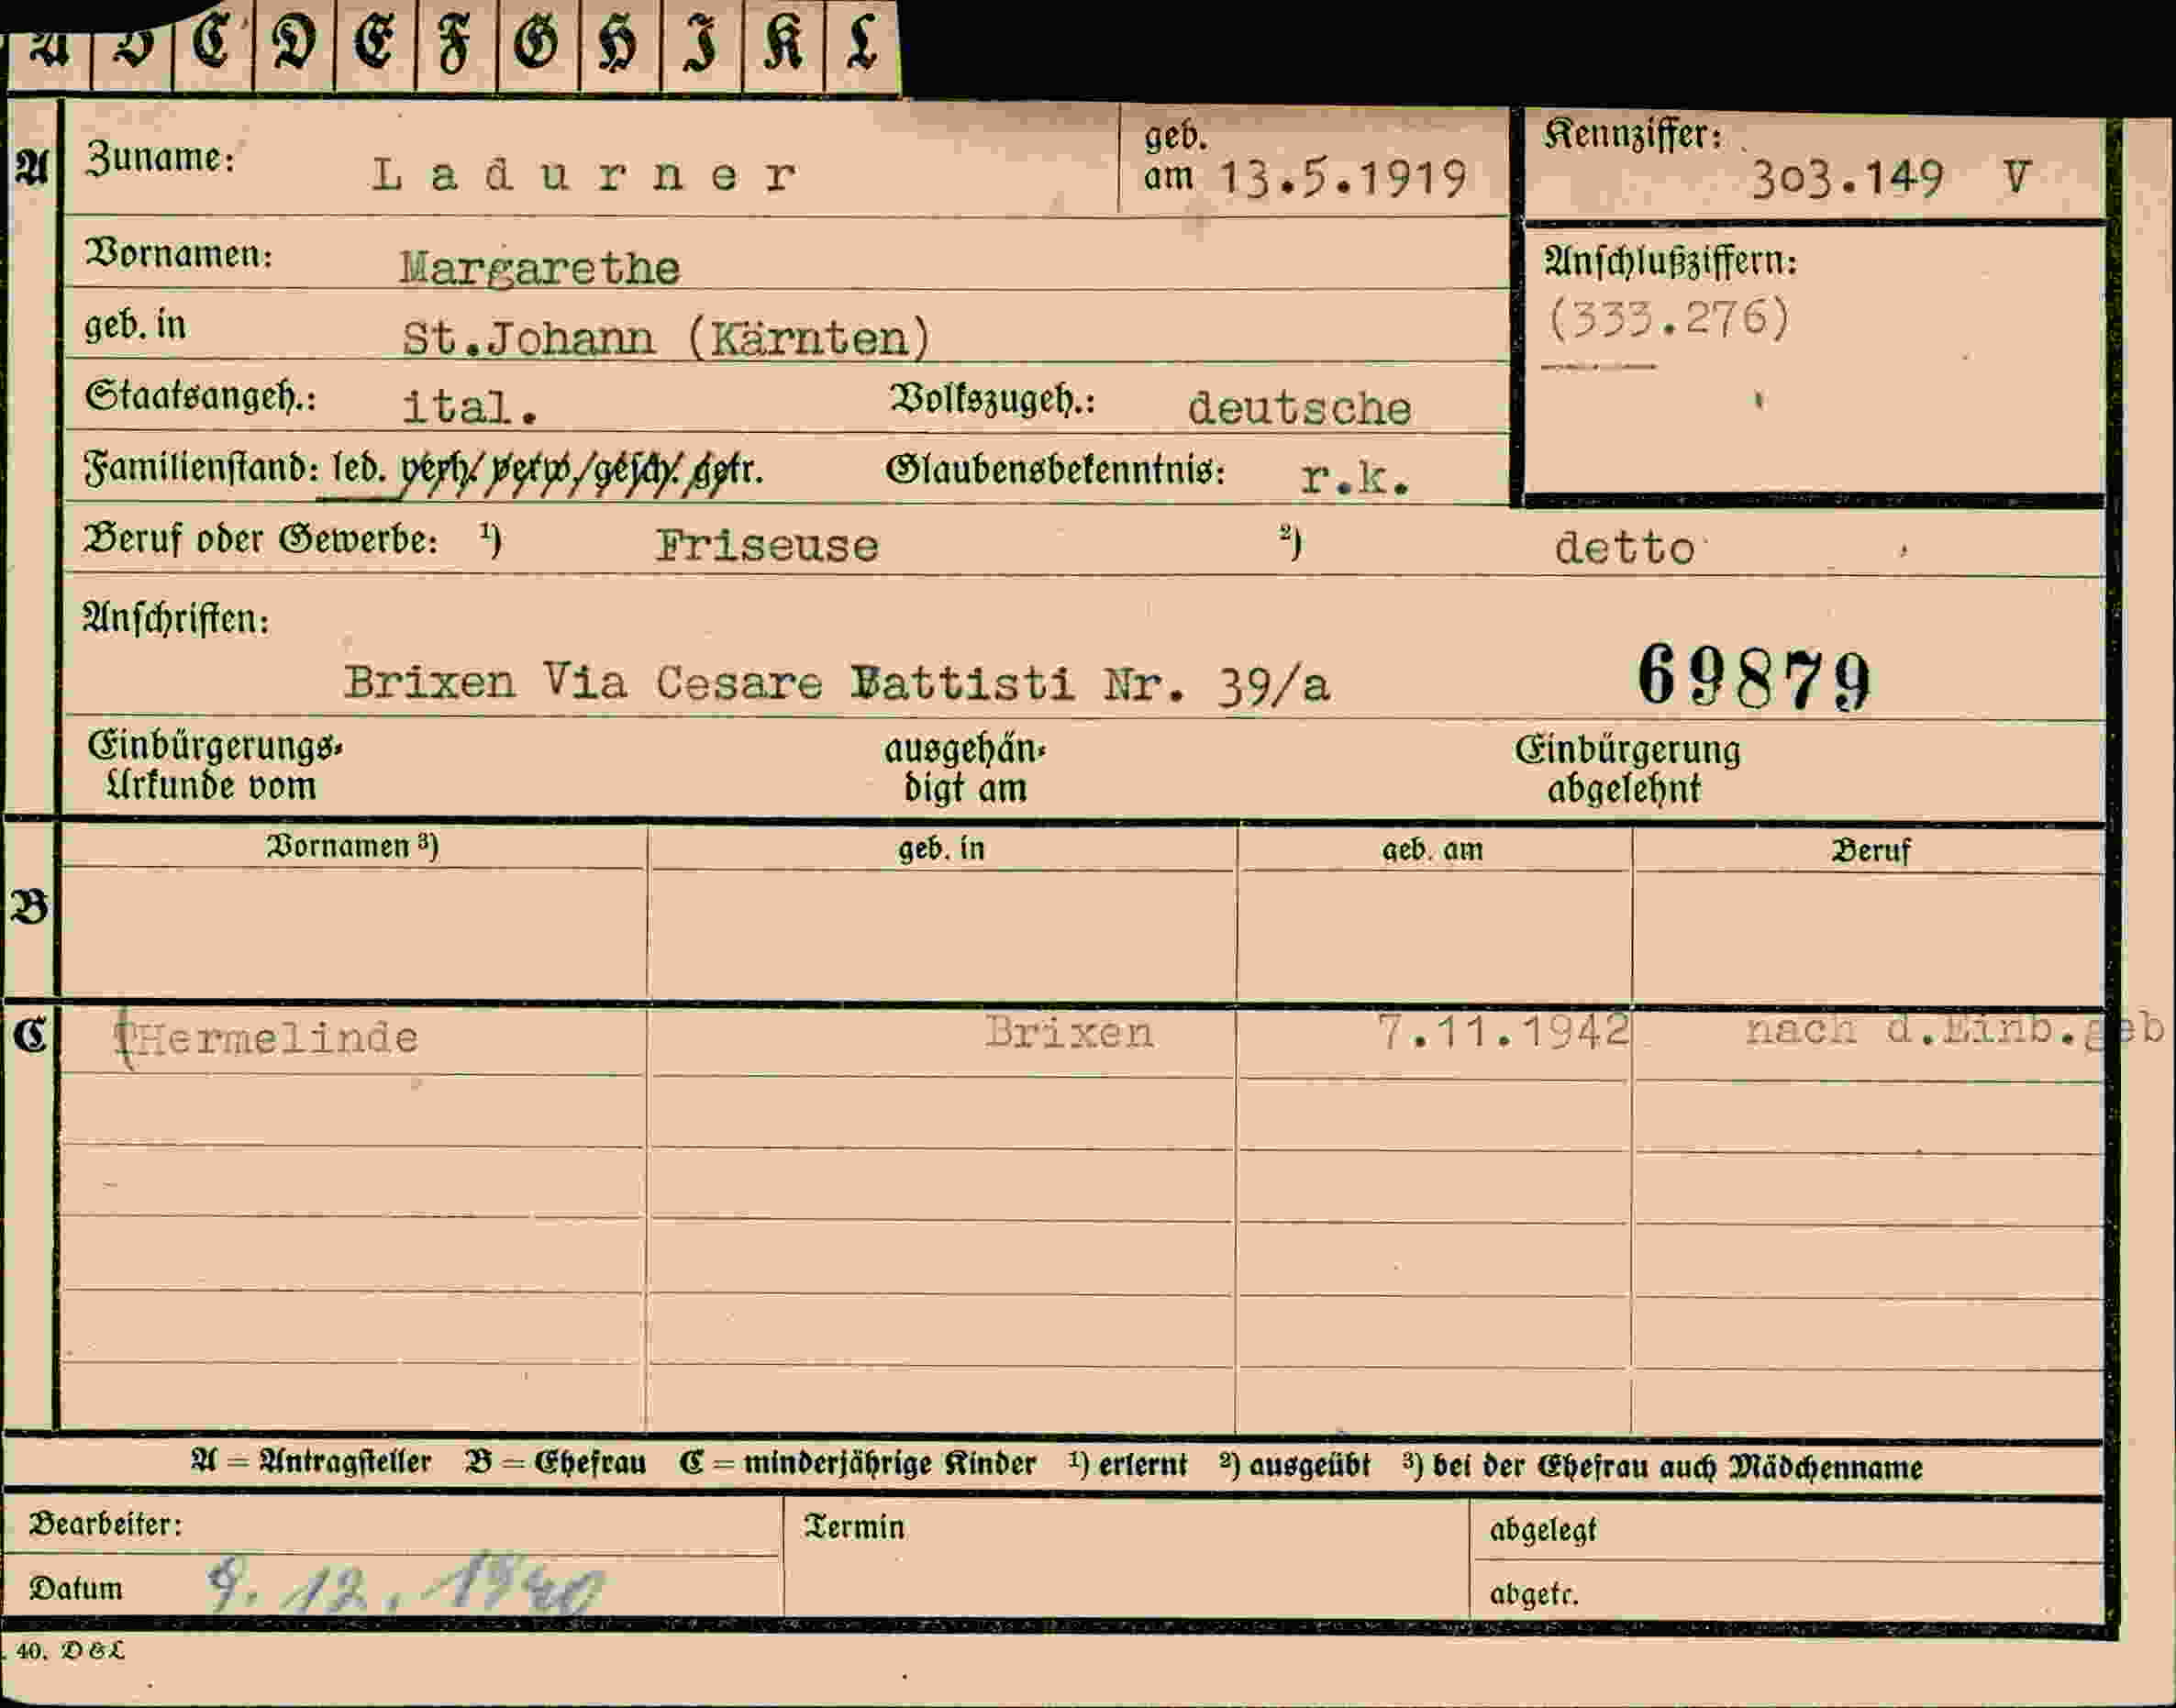 A B C D E F G H I K L
A Zuname: Ladurner geb. am 13.5.1919 Kennziffer: 303.149 V
Vornamen: Margarethe Anschlußziffern:
(333.276)
geb. in St.Johann (Kärnten)
Staatsangeh.: ital. Volkszugeh.: deutsche
Familienstand: led. verh. verw. gesch. getr. Glaubensbekenntnis: r.k.
Beruf oder Gewerbe: 1) Friseuse 2) detto
Anschriften:
Brixen Via Cesare Battisti Nr. 39/a 69879
Einbürgerungs- ausgehän- Einbürgerung
Urkunde vom digt am abgelehnt
Vornamen 3) geb. in geb. am Beruf
B
C (Hermelinde Brixen 7.11.1942 nach d.Einb.geb
A = Antragsteller B = Ehefrau C = minderjährige Kinder 1) erlernt 2) ausgeübt 3) bei der Ehefrau auch Mädchenname
Bearbeiter: Termin abgelegt
Datum 9.12.1940 abgetr.
40. D&L